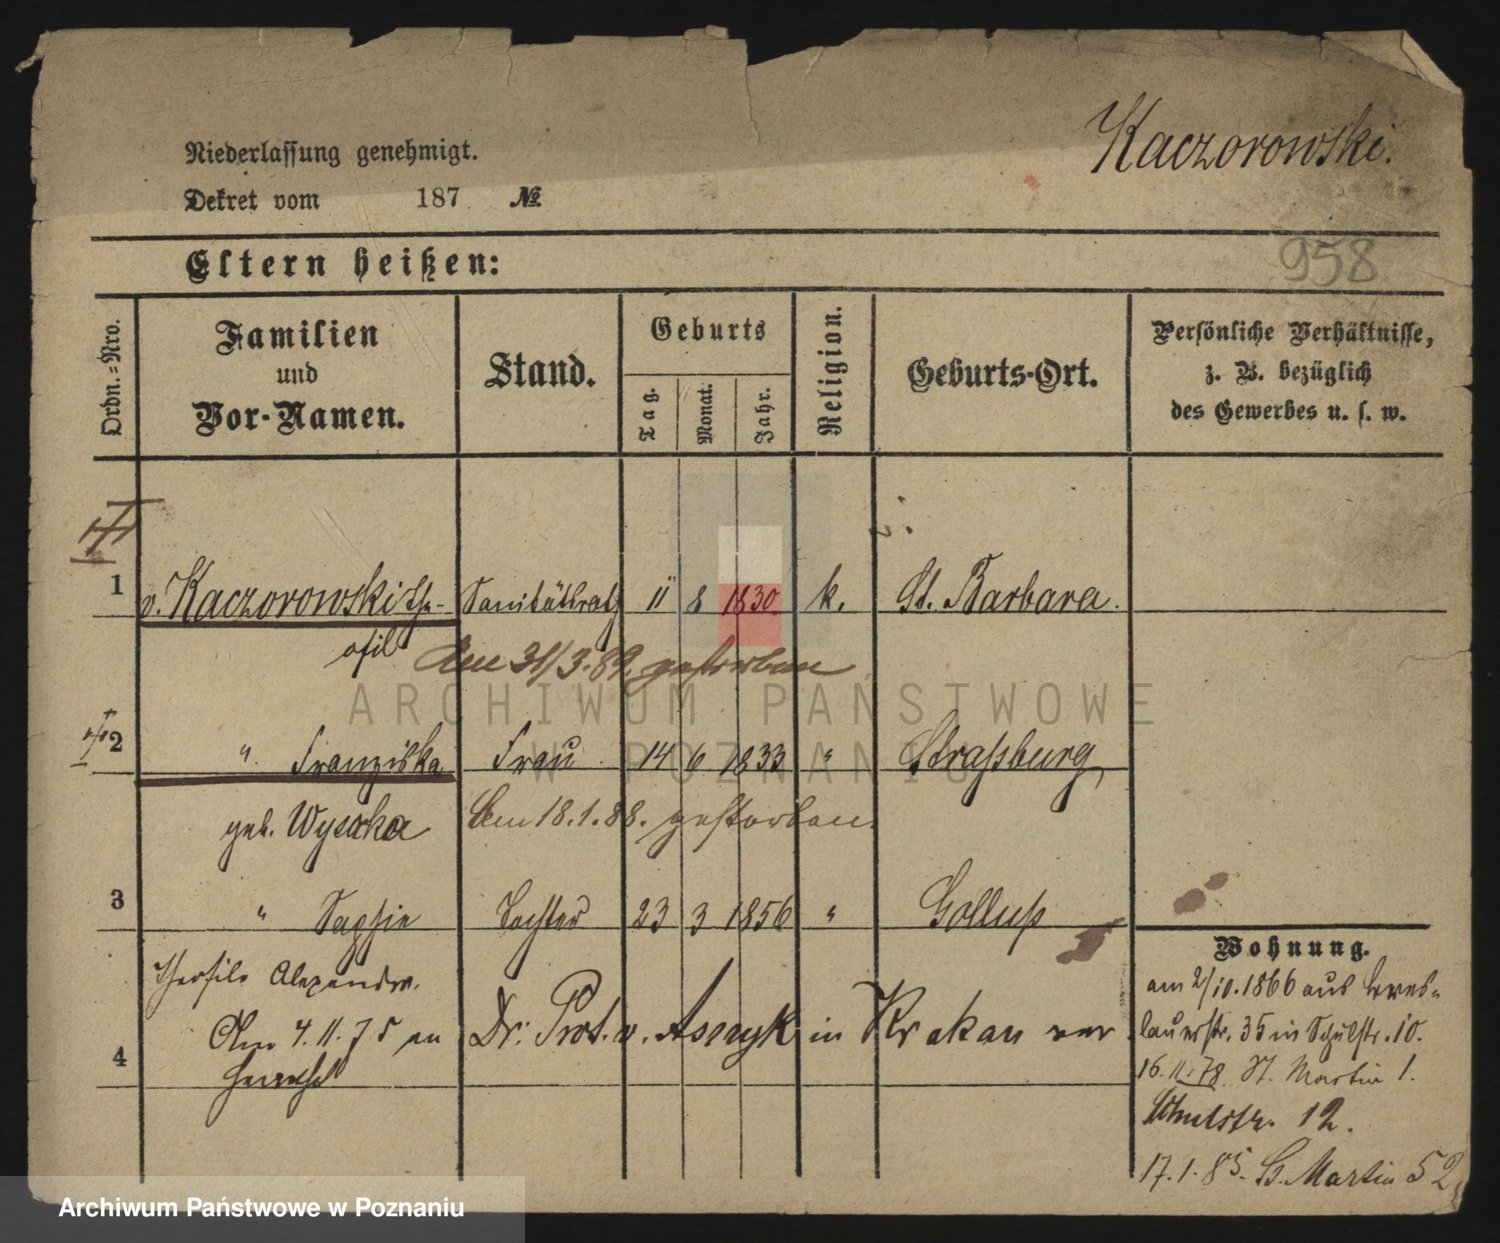 Kaczorowski.
Niederlassung genehmigt.
Dekret vom 187 №
958
Eltern heißen:
Ordn.=Nro.
Familien
und
Vor-Namen.
Stand.
Geburts
Tag.
Monat.
Jahr.
Religion.
Geburts-Ort.
Persönliche Verhältnisse,
z. B. bezüglich
des Gewerbes u. s. w.
1 v. Kaczorowski The- Sanitätsrath 11 8 1830 k. St. Barbara.
ofil Am 31/3.89. gestorben
2 " Franziska Frau 14 6 1833 " Straßburg
geb. Wysocka Am 18.1.88. gestorben.
3 " Sophie Tochter 23 3 1856 " Gollub
Theofile Alexandra.
Am 4.11.75 an Dr. Prot. v. Asnyk in Krakau ver
4
Wohnung.
am 2/10.1866 aus Bres-
lauerstr. 35 in Schulstr. 10.
16.11.78. St. Martin 1.
Schulstr. 12.
17.1.85. St. Martin 52
ARCHIWUM PAŃSTWOWE
W POZNANIU
Archiwum Państwowe w Poznaniu